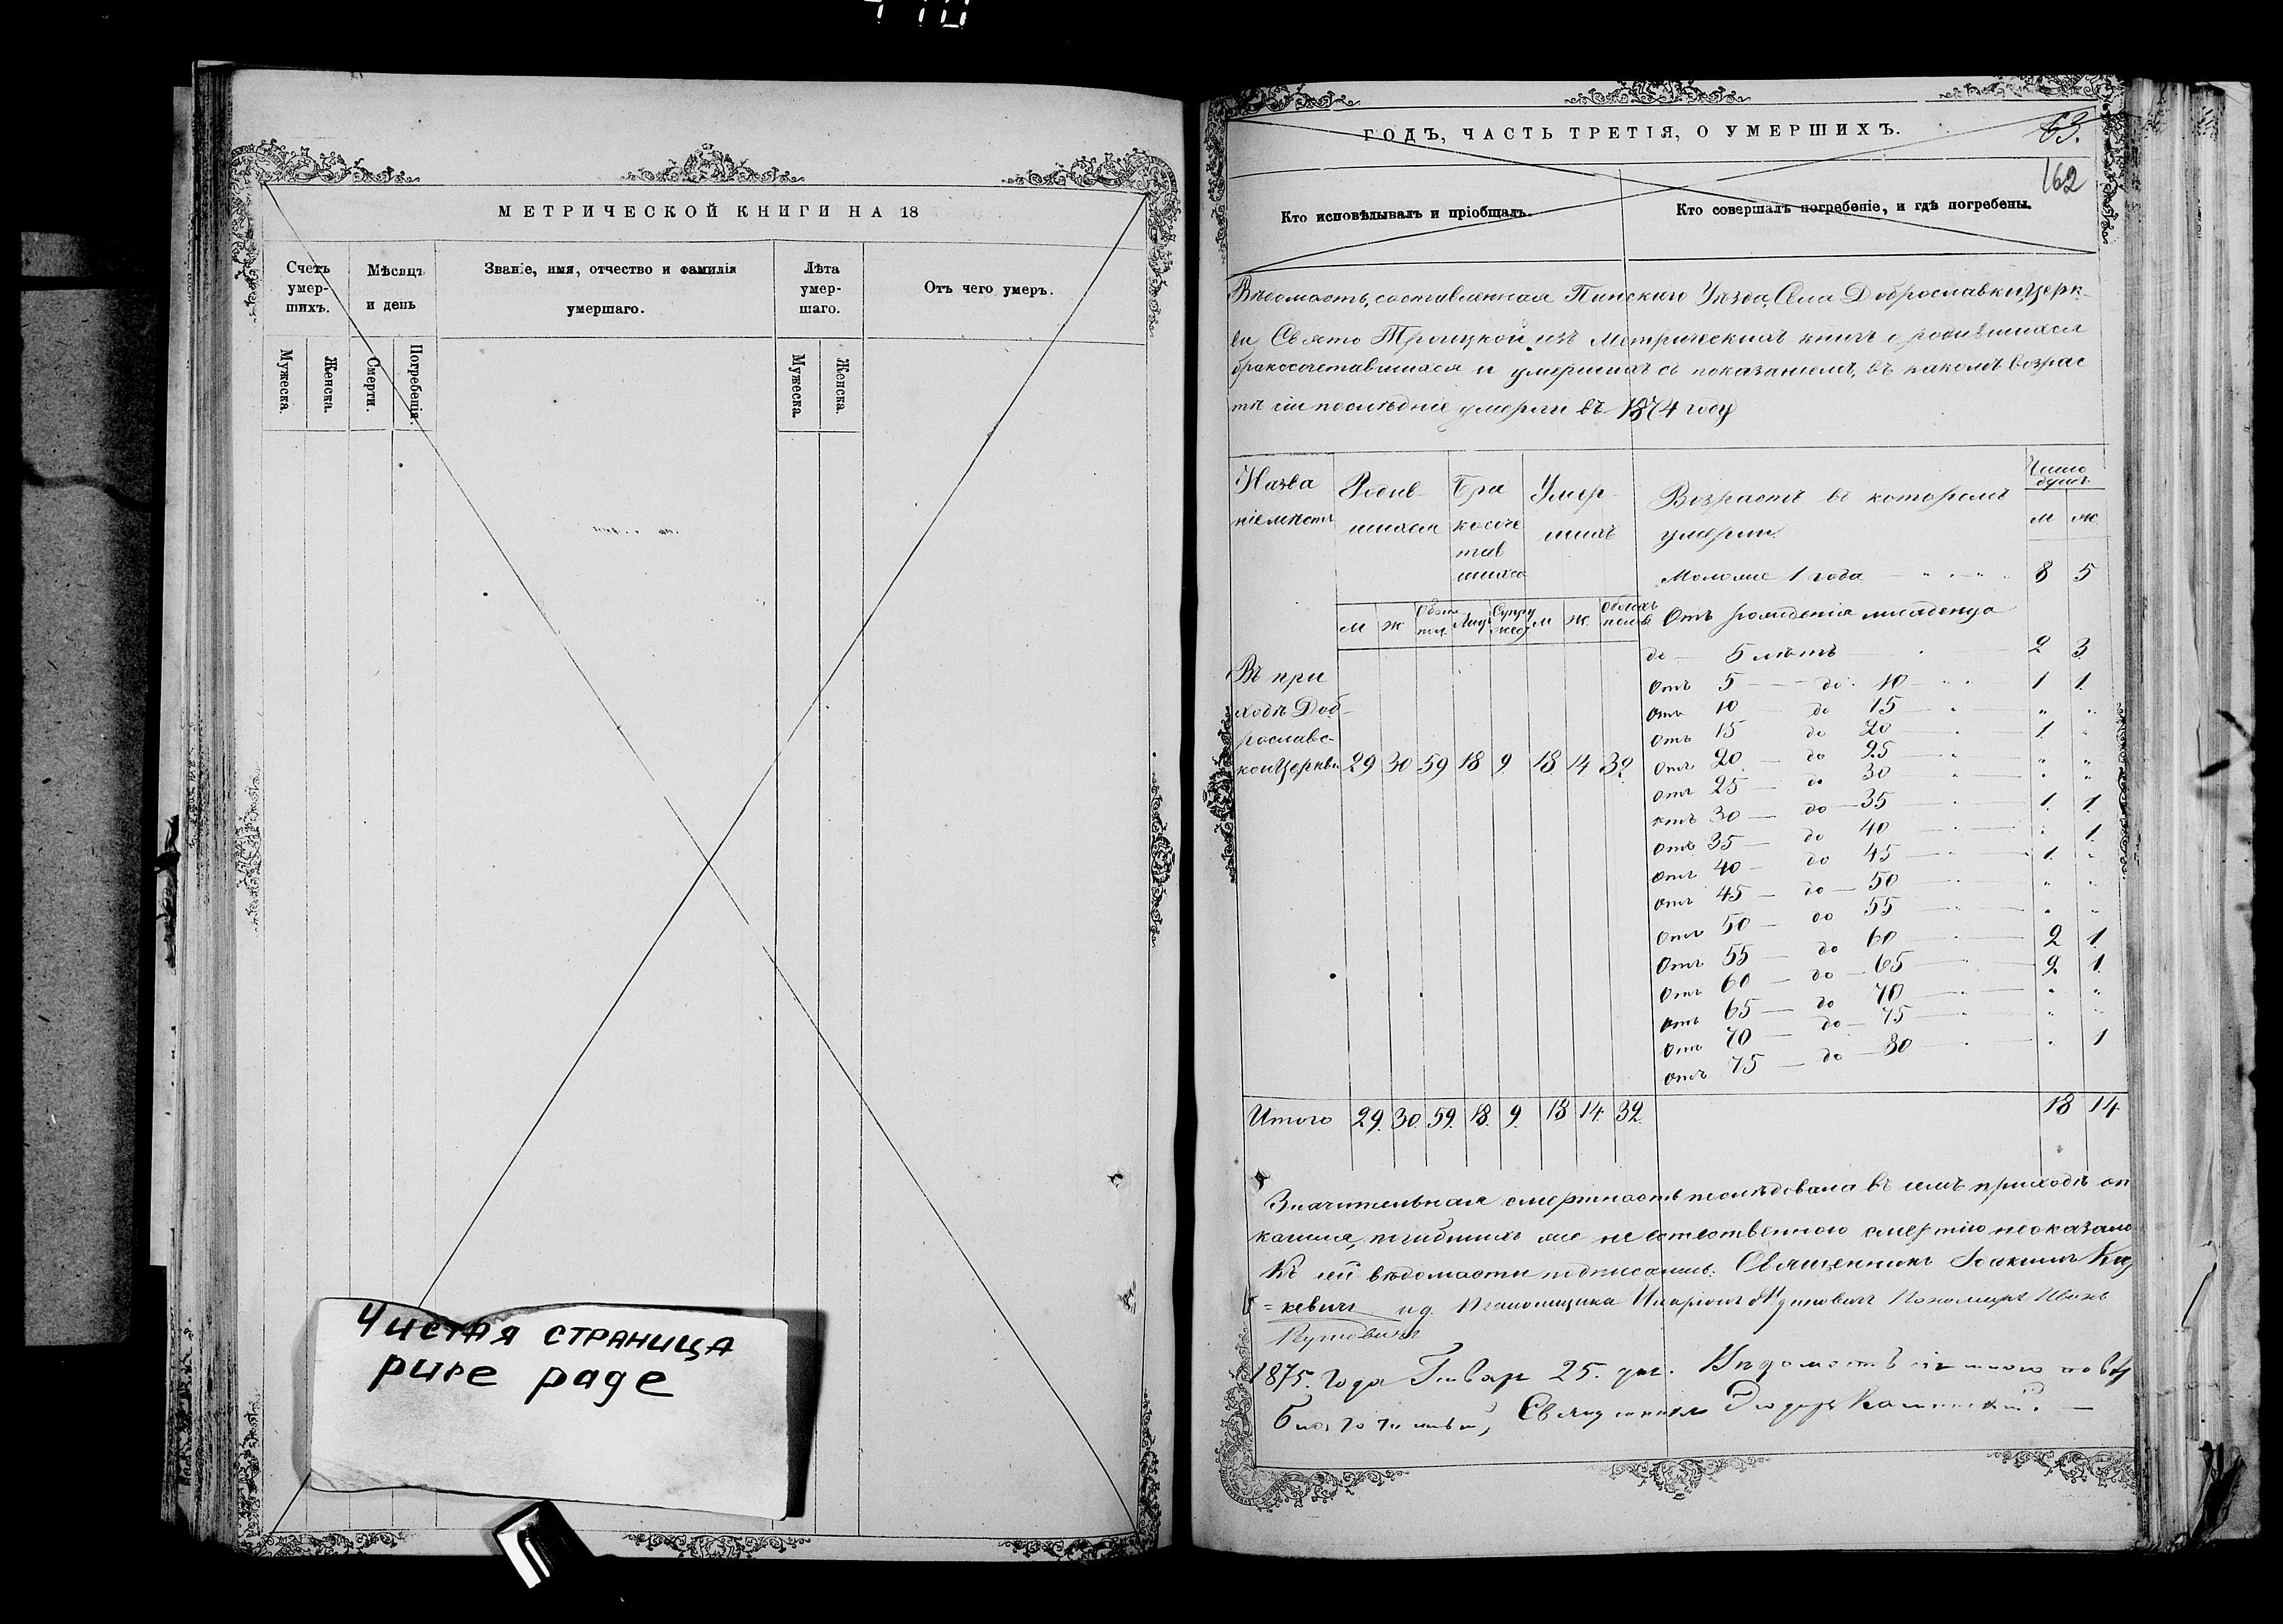 МЕТРИЧЕСКОЙ КНИГИ НА 18
Счетъ умер- шихъ.
Мѣсяцъ и день
Званіе, имя, отчество и фамилія умершаго.
Лѣта умер- шаго.
Отъ чего умеръ.
Мужеска. Женска. Смерти. Погребенія. Мужеска. Женска.
Чистая страница
pure page
ГОДЪ, ЧАСТЬ ТРЕТІЯ, О УМЕРШИХЪ.
63.
162
Кто исповѣдывалъ и пріобщалъ. Кто совершалъ погребеніе, и гдѣ погребены.
Вѣдомость, составленная Пинскаго Уѣзда, Села Доброславки, Церк-
ви Свято Троицкой изъ Метрическихъ книгъ о родившихся
бракосочетавшихся и умершихъ съ показаніемъ, въ какомъ возрас
тѣ сіи послѣдніе умерли въ 1874 году
Назва ніе мѣстъ
Родив- шихся
Бра косоче тав шихся
Умер- шихъ
Возрастъ въ которомъ умерли.
Число душъ
м ж
Моложе 1 года 8 5
м ж Обоего пол. Лицъ Супру жес м ж Обоихъ половъ
Отъ рожденія младенца
до 5 лѣтъ 2 3
Отъ 5 до 10 1 1
Отъ 10 до 15 " "
Отъ 15 до 20 1 "
Отъ 20 до 25 " "
Отъ 25 до 30 " "
Отъ 30 до 35 1 1
Отъ 35 до 40 " 1
Отъ 40 до 45 1 "
Отъ 45 до 50 " "
Отъ 50 до 55 " "
Отъ 55 до 60 2 1
Отъ 60 до 65 2 1
Отъ 65 до 70 " "
Отъ 70 до 75 " "
Отъ 75 до 80 " 1
Въ при
ходѣ Доб-
рославс-
кой Церкви 29 30 59 18 9 18 14 32
Итого 29. 30. 59. 18. 9. 18 14. 32. 18 14
Значительная смертность послѣдовала въ семъ приходѣ от
кашля, погибшихъ же не естественною смертію не оказало
Къ сей вѣдомости подписались: Священникъ Іоакимъ
=кевичъ и. д. Псаломщика Иларіонъ Пономарь Иванъ
1875. Года Январ 25. дня. Вѣдомость сія мною повѣ
Благочинный, Священникъ